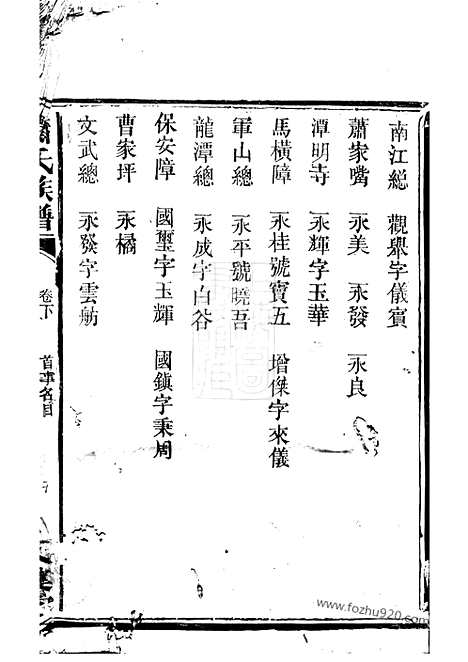 南江總 觀舉字儀賓
蕭家嘴 永美 永發 永良
潭明寺 永輝字玉華
馬橫障 永桂號寶五 增傑字來儀
軍山總 永平號曉吾
龍潭總 永成字白谷
保安障 國璽字玉輝 國鎮字秉周
曹家坪 永橘
文武總 永發字雲舫
蕭氏族譜 卷下 首事名目
www.fozhu920.com